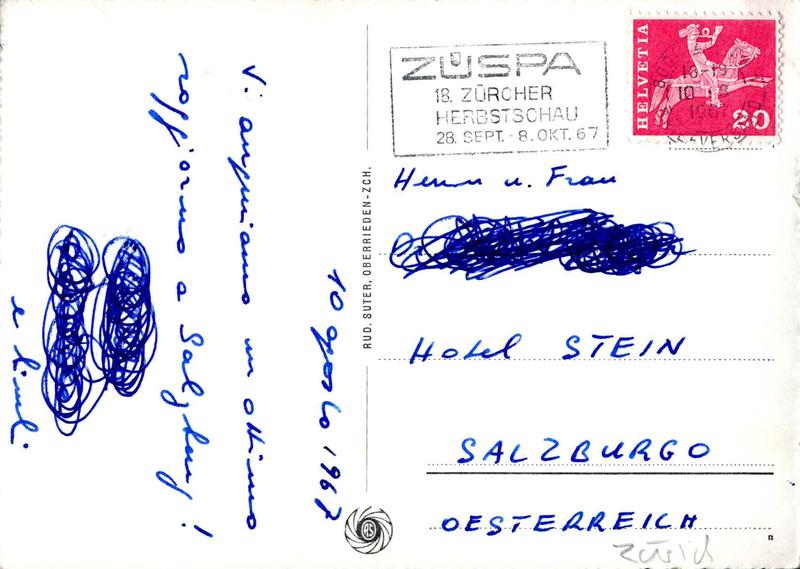 Vi auguriamo un ottimo
soggiorno a Salzburg!
e
10 agosto 1967
RUD. SUTER, OBERRIEDEN-ZCH.
ZÜSPA
18. ZÜRCHER
HERBSTSCHAU
28. SEPT. - 8. OKT. 67
HELVETIA
20
10
1967
Herrn u. Frau
Hotel STEIN
SALZBURGO
OESTERREICH
Zürich
n